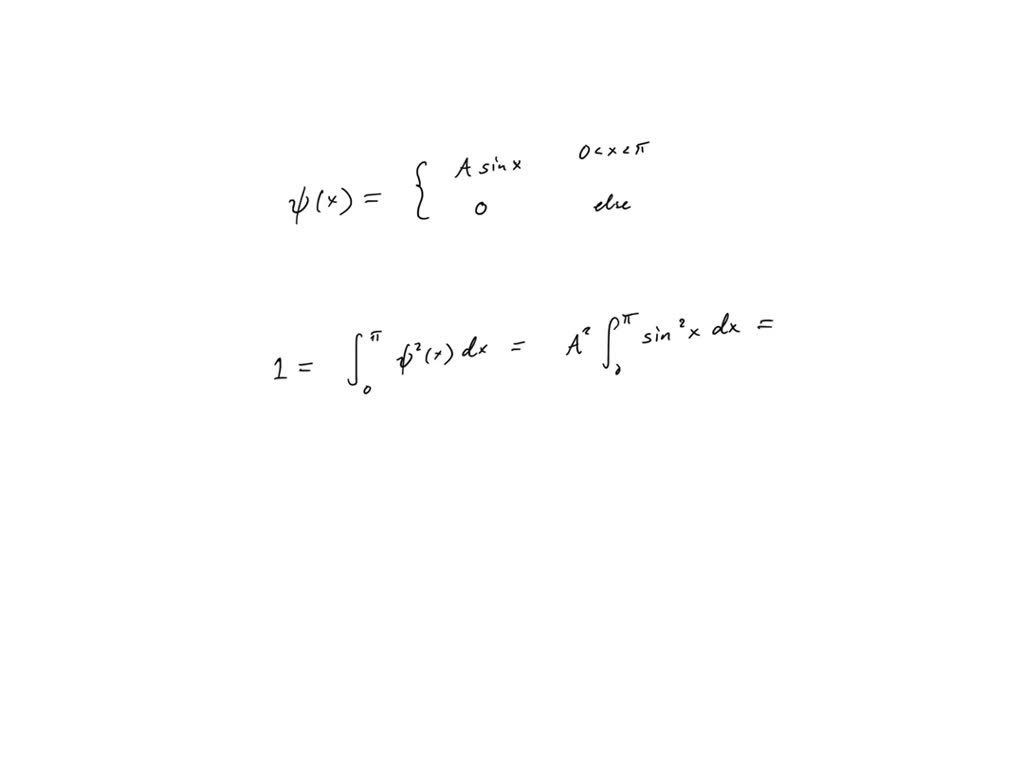 ψ(x) = { A sin x 0 < x < π
0 else
1 = ∫₀^π ψ²(x) dx = A² ∫₀^π sin²x dx =